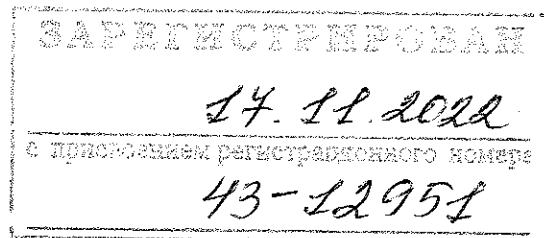 ЗАРЕГИСТРИРОВАН
17.11.2022
с присвоением регистрационного номера
43-12951